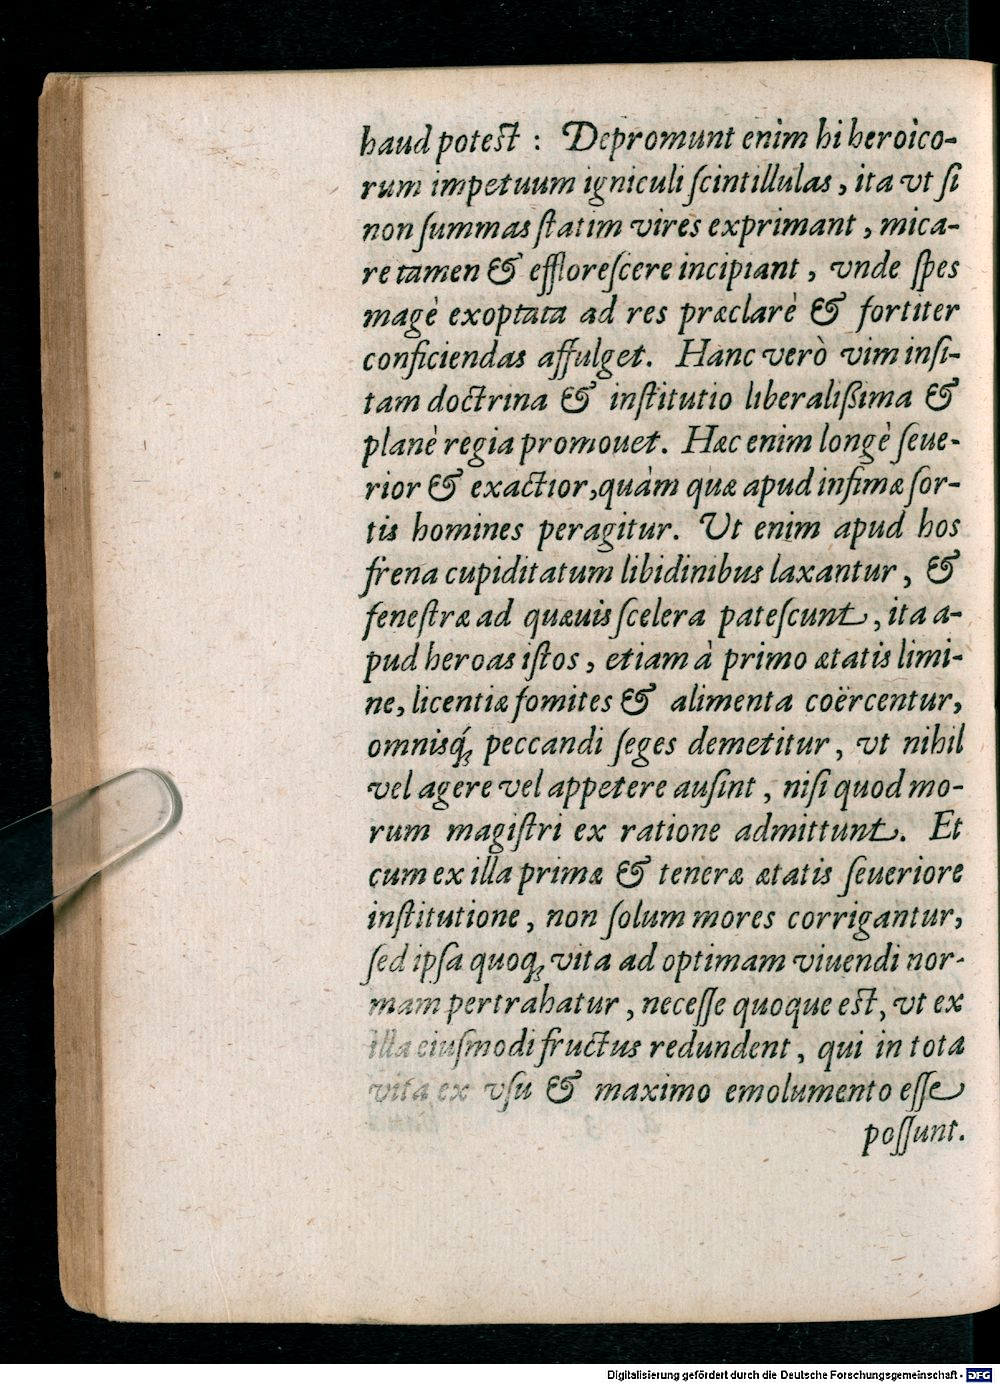 haud potest : Depromunt enim hi heroico-
rum impetuum igniculi ſcintillulas, ita vt ſi
non ſummas ſtatim vires exprimant, mica-
re tamen & effloreſcere incipiant, vnde ſpes
magè exoptata ad res præclarè & fortiter
conficiendas affulget. Hanc verò vim inſi-
tam doctrina & inſtitutio liberaliſsima &
planè regia promouet. Hæc enim longè ſeue-
rior & exactior, quàm quæ apud infimæ ſor-
tis homines peragitur. Ut enim apud hos
frena cupiditatum libidinibus laxantur, &
feneſtræ ad quæuis ſcelera pateſcunt, ita a-
pud heroas iſtos, etiam à primo ætatis limi-
ne, licentiæ fomites & alimenta coërcentur,
omnisq́; peccandi ſeges demetitur, vt nihil
vel agere vel appetere auſint, niſi quod mo-
rum magiſtri ex ratione admittunt. Et
cum ex illa primæ & teneræ ætatis ſeueriore
inſtitutione, non ſolum mores corrigantur,
ſed ipſa quoq; vita ad optimam viuendi nor-
mam pertrahatur, neceſſe quoque est, vt ex
illa eiuſmodi fructus redundent, qui in tota
vita ex vſu & maximo emolumento eſſe
poſſunt.
Digitalisierung gefördert durch die Deutsche Forschungsgemeinschaft - DFG